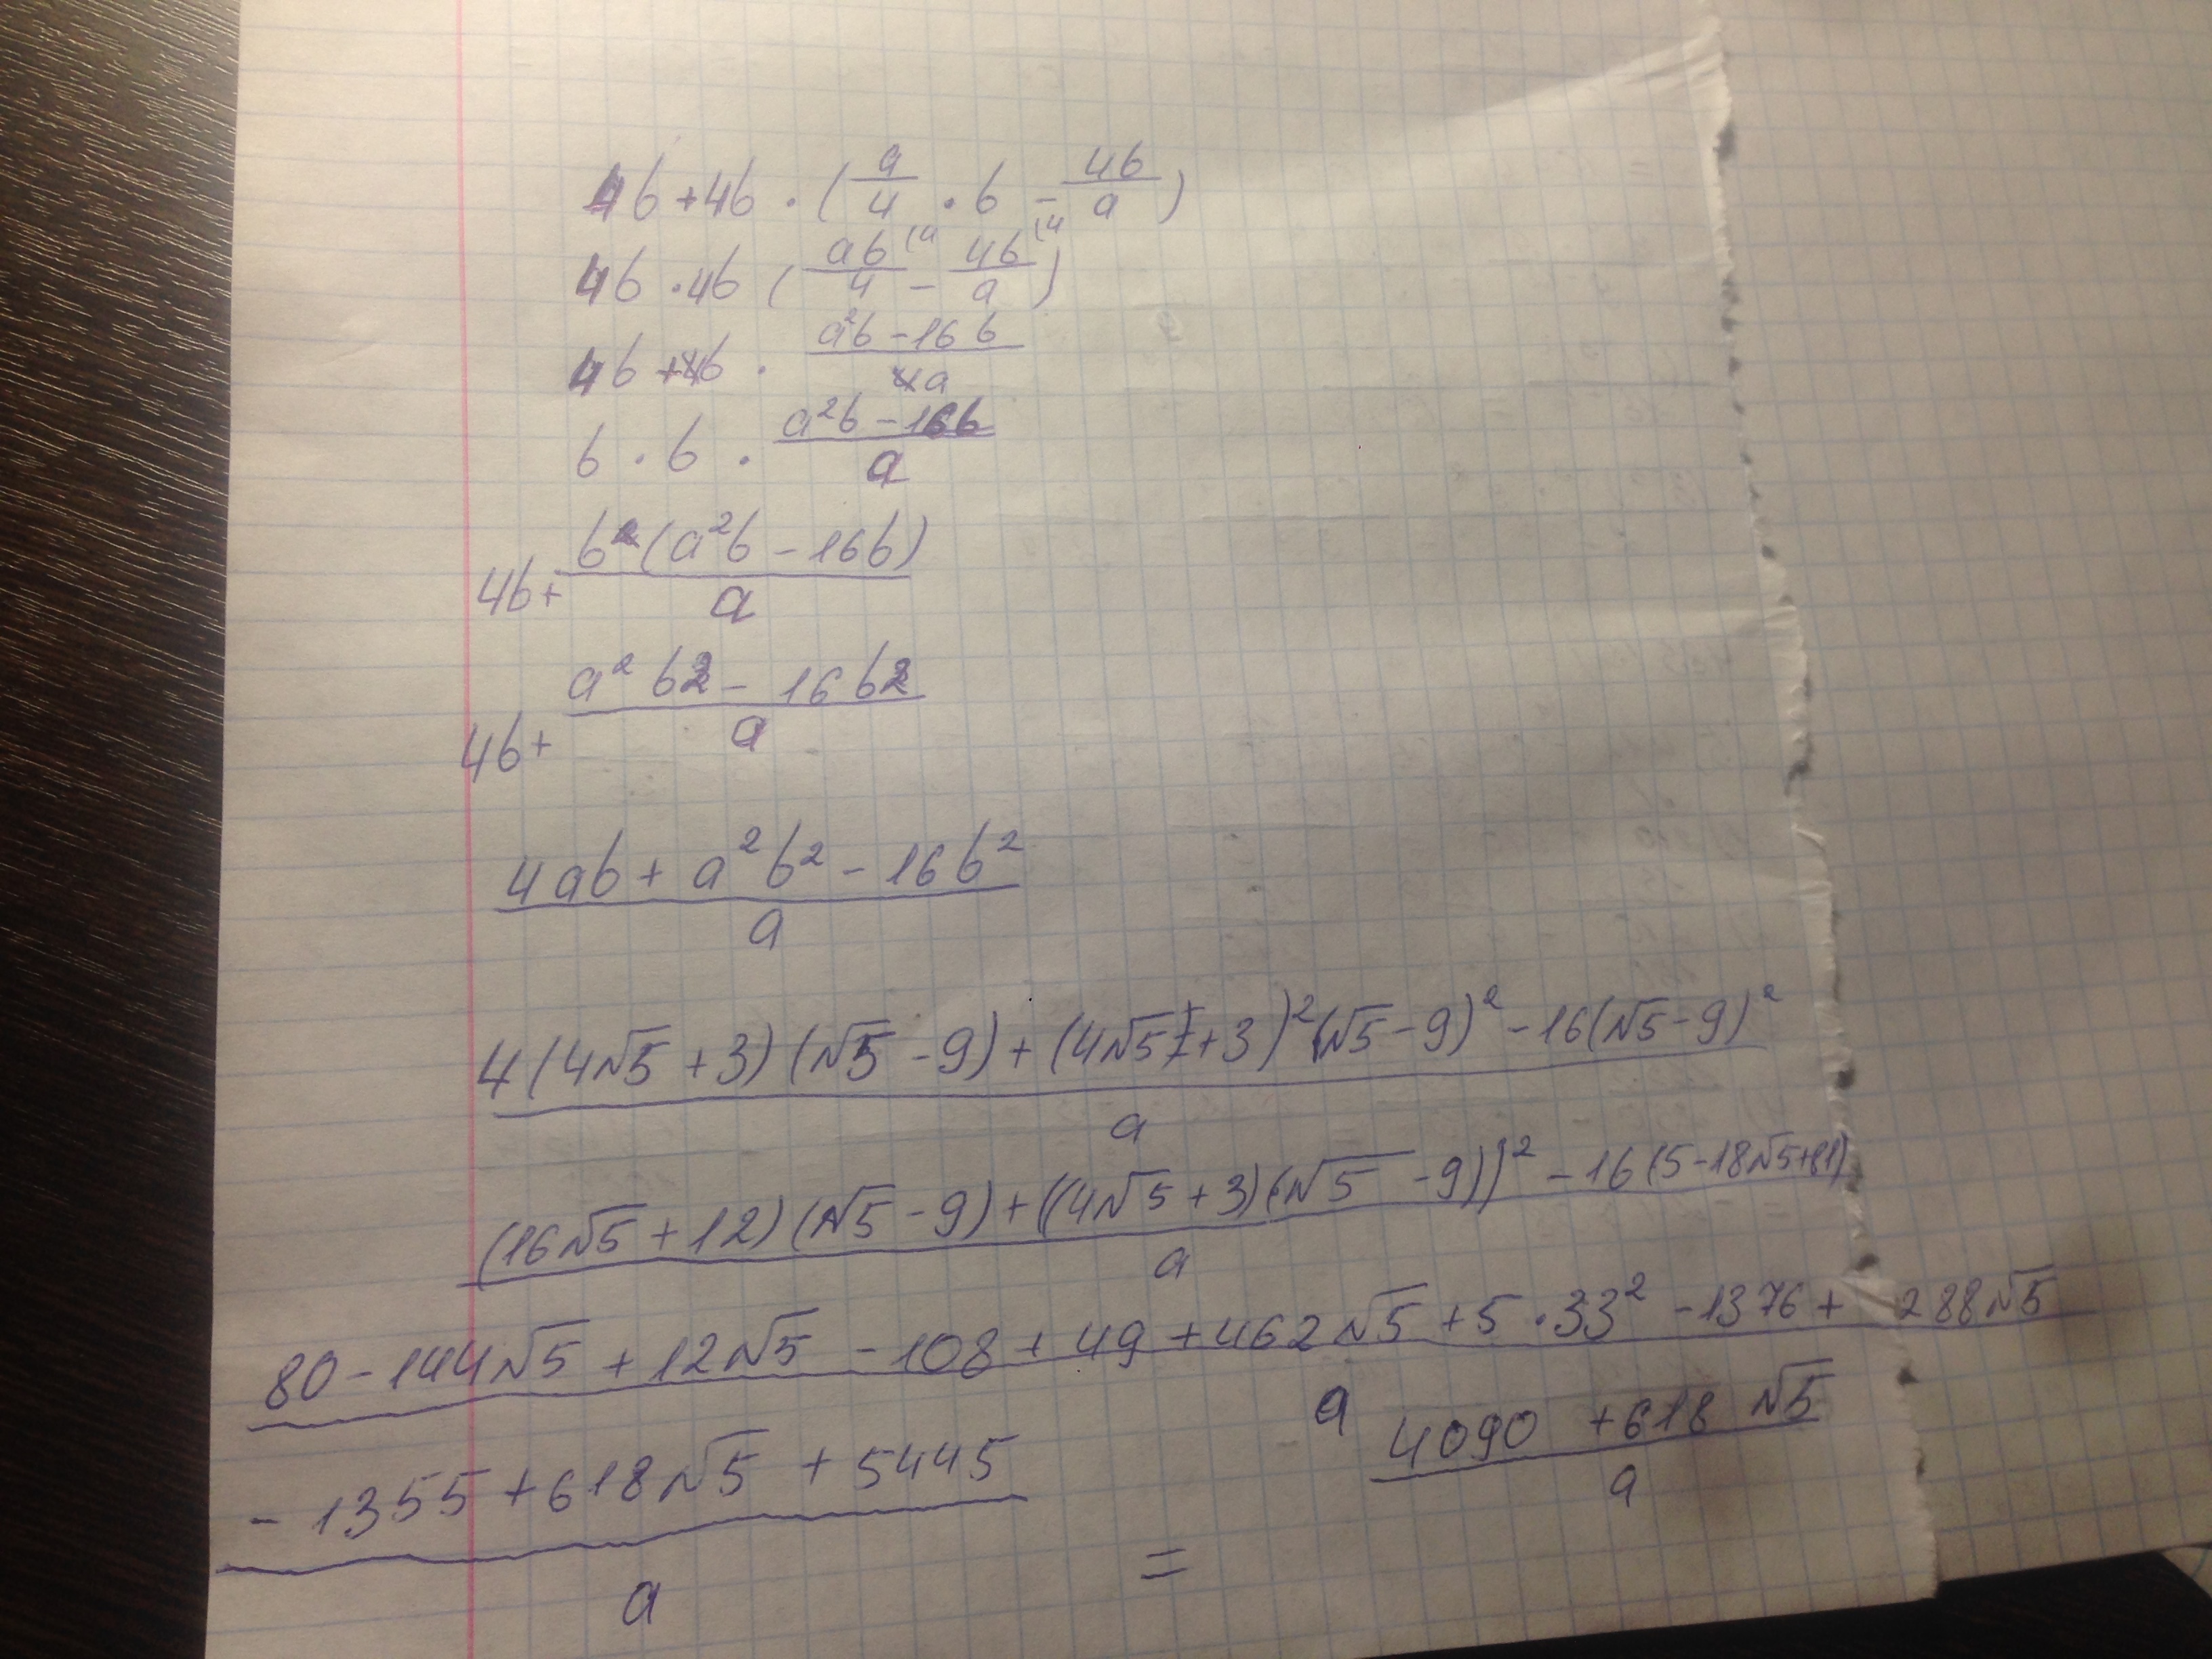 4b + 4b · (a/4 · b - 4b/a)
4b · 4b (ab/4 (a - 4b/a (4)
4b + 4b · (a²b - 16b)/4a
b · b · (a²b - 16b)/a
4b + b(a²b - 16b)/a
4b + (a²b2 - 16b2)/a
(4ab + a²b² - 16b²)/a
(4(4√5 + 3)(√5 - 9) + (4√5 + 3)²(√5 - 9)² - 16(√5 - 9)²)/a
((16√5 + 12)(√5 - 9) + ((4√5 + 3)(√5 - 9))² - 16(5 - 18√5 + 81))/a
(80 - 144√5 + 12√5 - 108 + 49 + 462√5 + 5 · 33² - 1376 + 288√5)/a
(-1355 + 618√5 + 5445)/a = (4090 + 618√5)/a